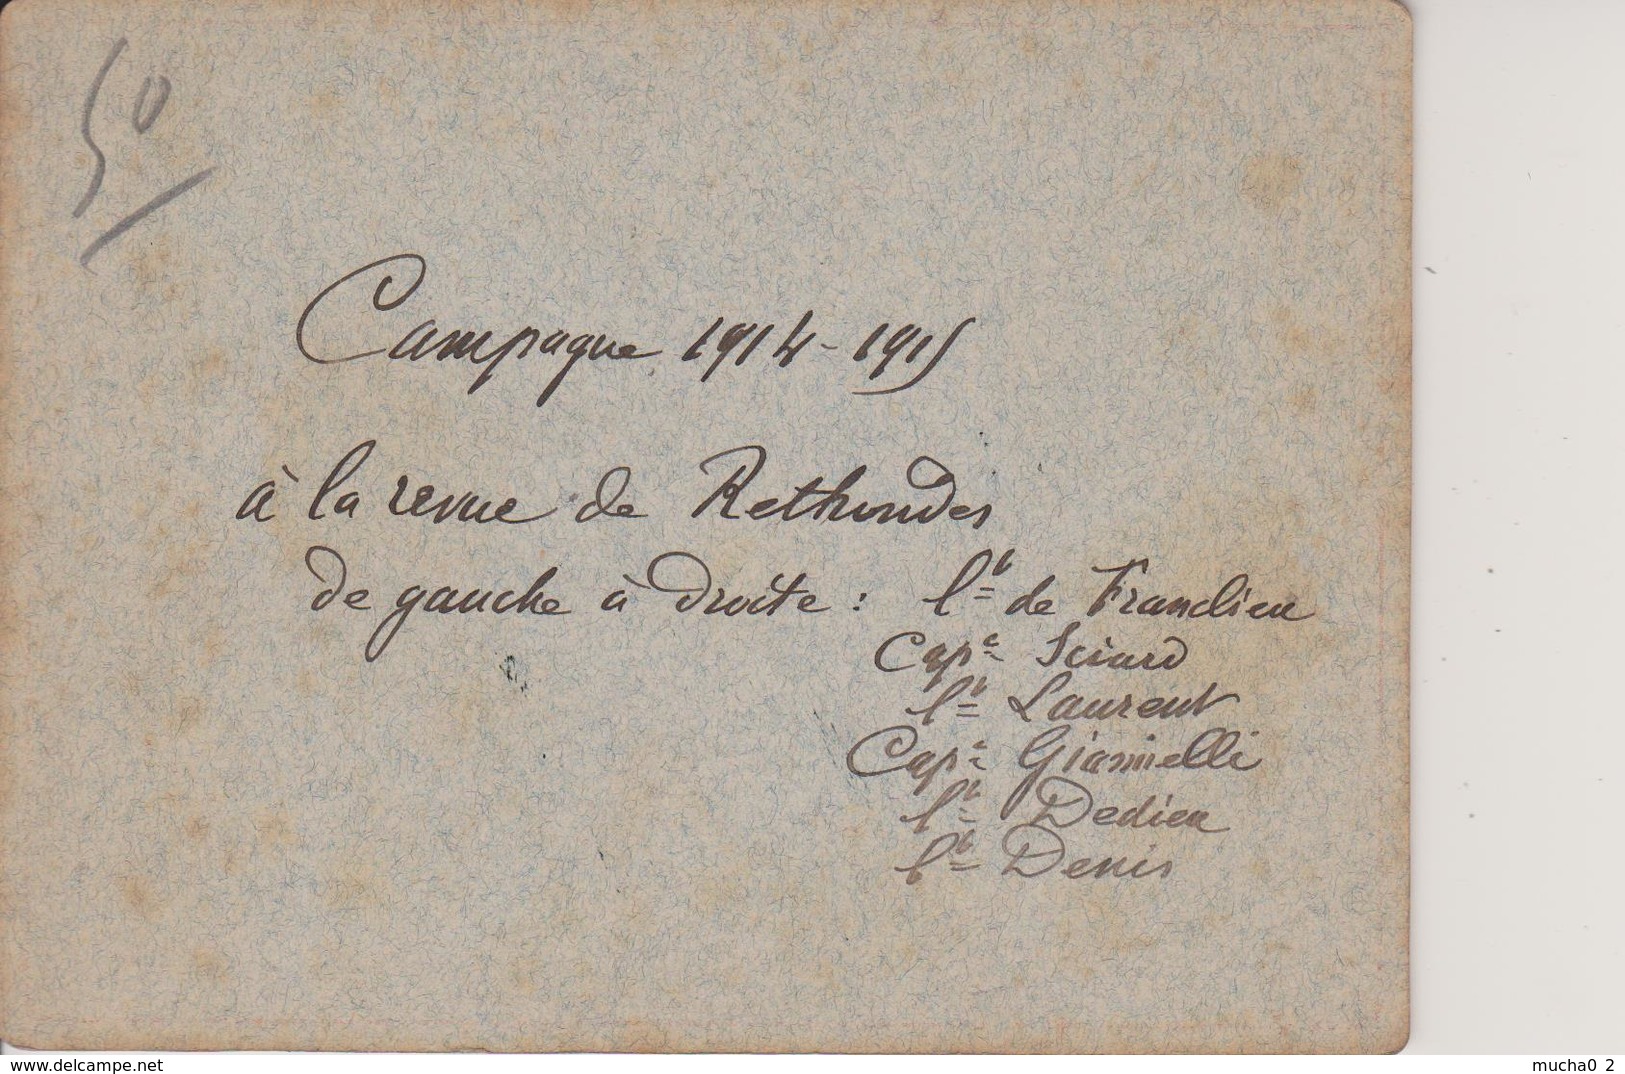 50
Campagne 1914-1915
à la revue de Rethondes
de gauche à droite : Lt de Franclieu
Capne Sciard
Lt Laurent
Capne Giannelli
Lt Dedieu
Lt Denis
www.delcampe.net
mucha0 2